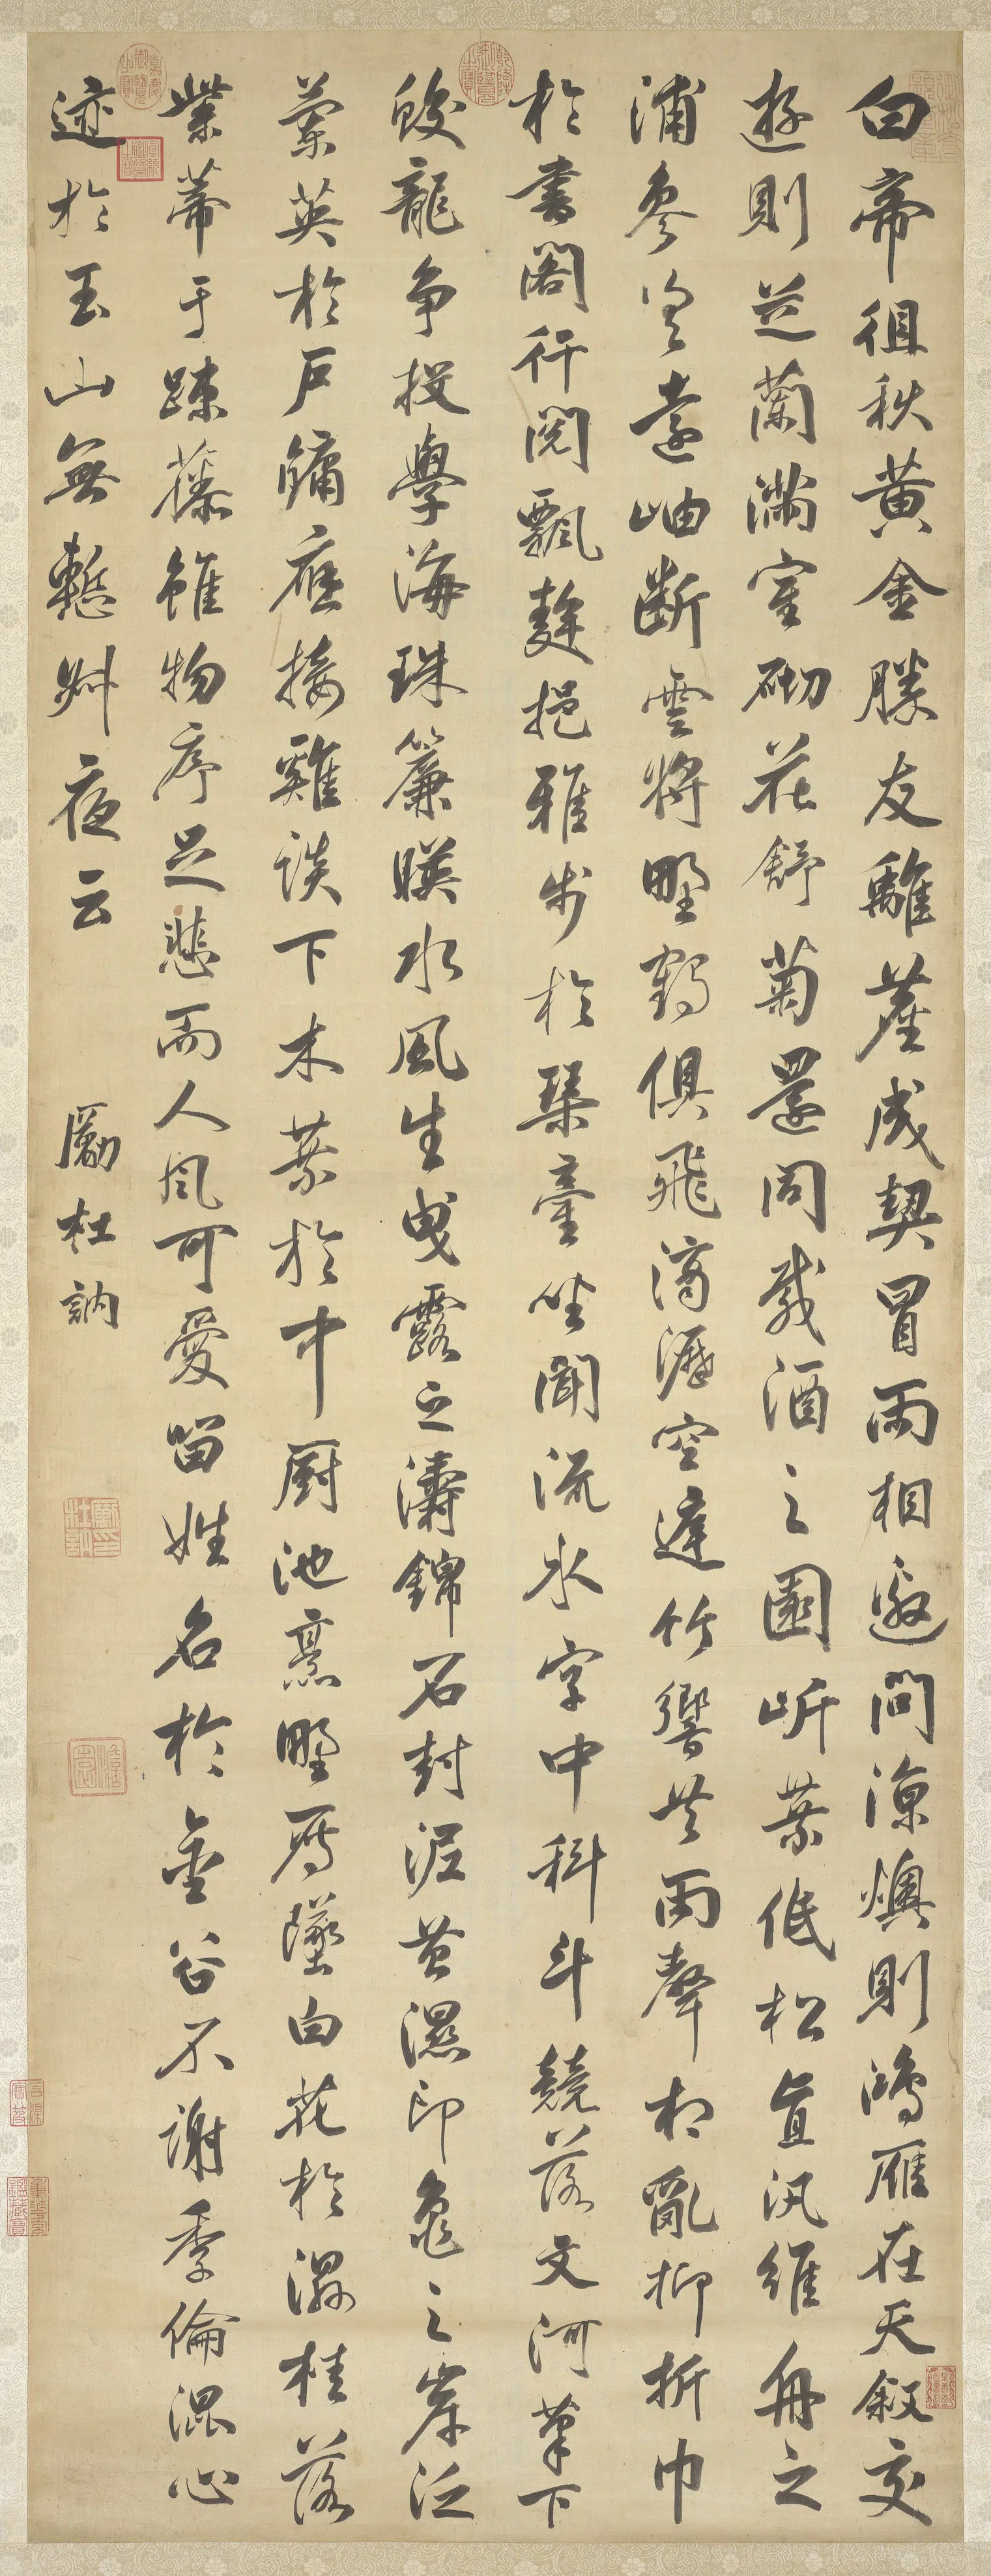 白帝徂秋黃金勝友離塵成契冒雨相邀問涼燠則鴻雁在天叙交
遊則芝蘭滿室砌花舒菊還同載酒之園岍葉低松直汎維舟之
浦參差遠岫斷雲將野鶴俱飛滴瀝空達竹響共雨聲相亂柳折巾
於書閣行閱飄挹雅步於琴臺坐聞流水字中科斗競落文河筆下
蛟龍爭投學海珠簾暎水風生曳露之濤錦石封泥苔濕印龜之岸泛
蘭英於戶牖應接雞談下木葉於中厨池烹野雁墜白花於濕桂落
紫蒂于踈藤雖物序足悲而人風可愛留姓名於金谷不謝季倫混心
迹於玉山無慙叔夜云 勵杜訥